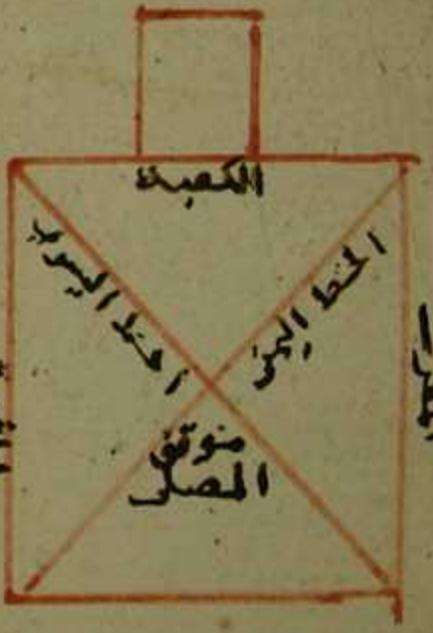 الكعبة
الخط اليمنى
الخط اليسرى
موقف
المصلى